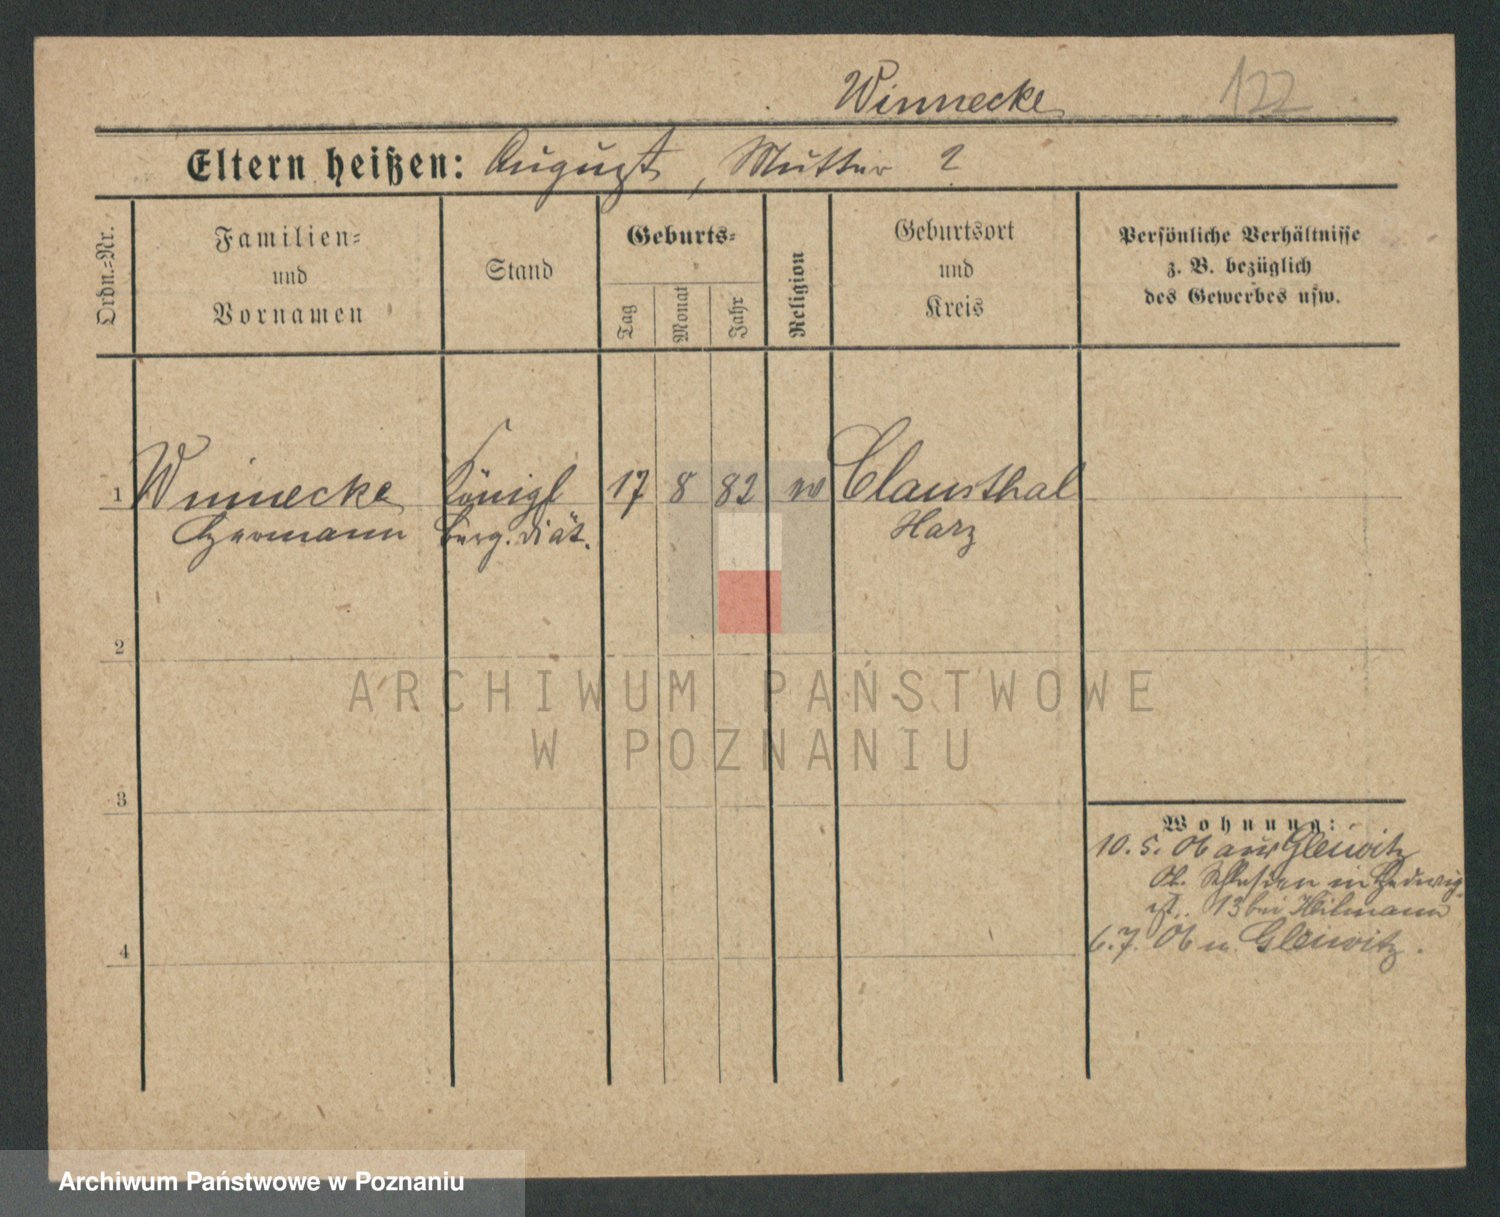 Winnecke 122
Eltern heißen: August, Mutter ?
Ordn.=Nr.
Familien=
und
Vornamen
Stand
Geburts=
Tag
Monat
Jahr
Religion
Geburtsort
und
Kreis
Persönliche Verhältnisse
z. B. bezüglich
des Gewerbes usw.
1 Winnecke Königl 17 8 82 Clausthal
Hermann diät. Harz
2
3
4
Wohnung:
10. 5. 06 aus Gleiwitz
Ob. Schlesien in Hedwig
st. 13 bei Heilmann
6. 7. 06 n. Gleiwitz.
ARCHIWUM PAŃSTWOWE
W POZNANIU
Archiwum Państwowe w Poznaniu